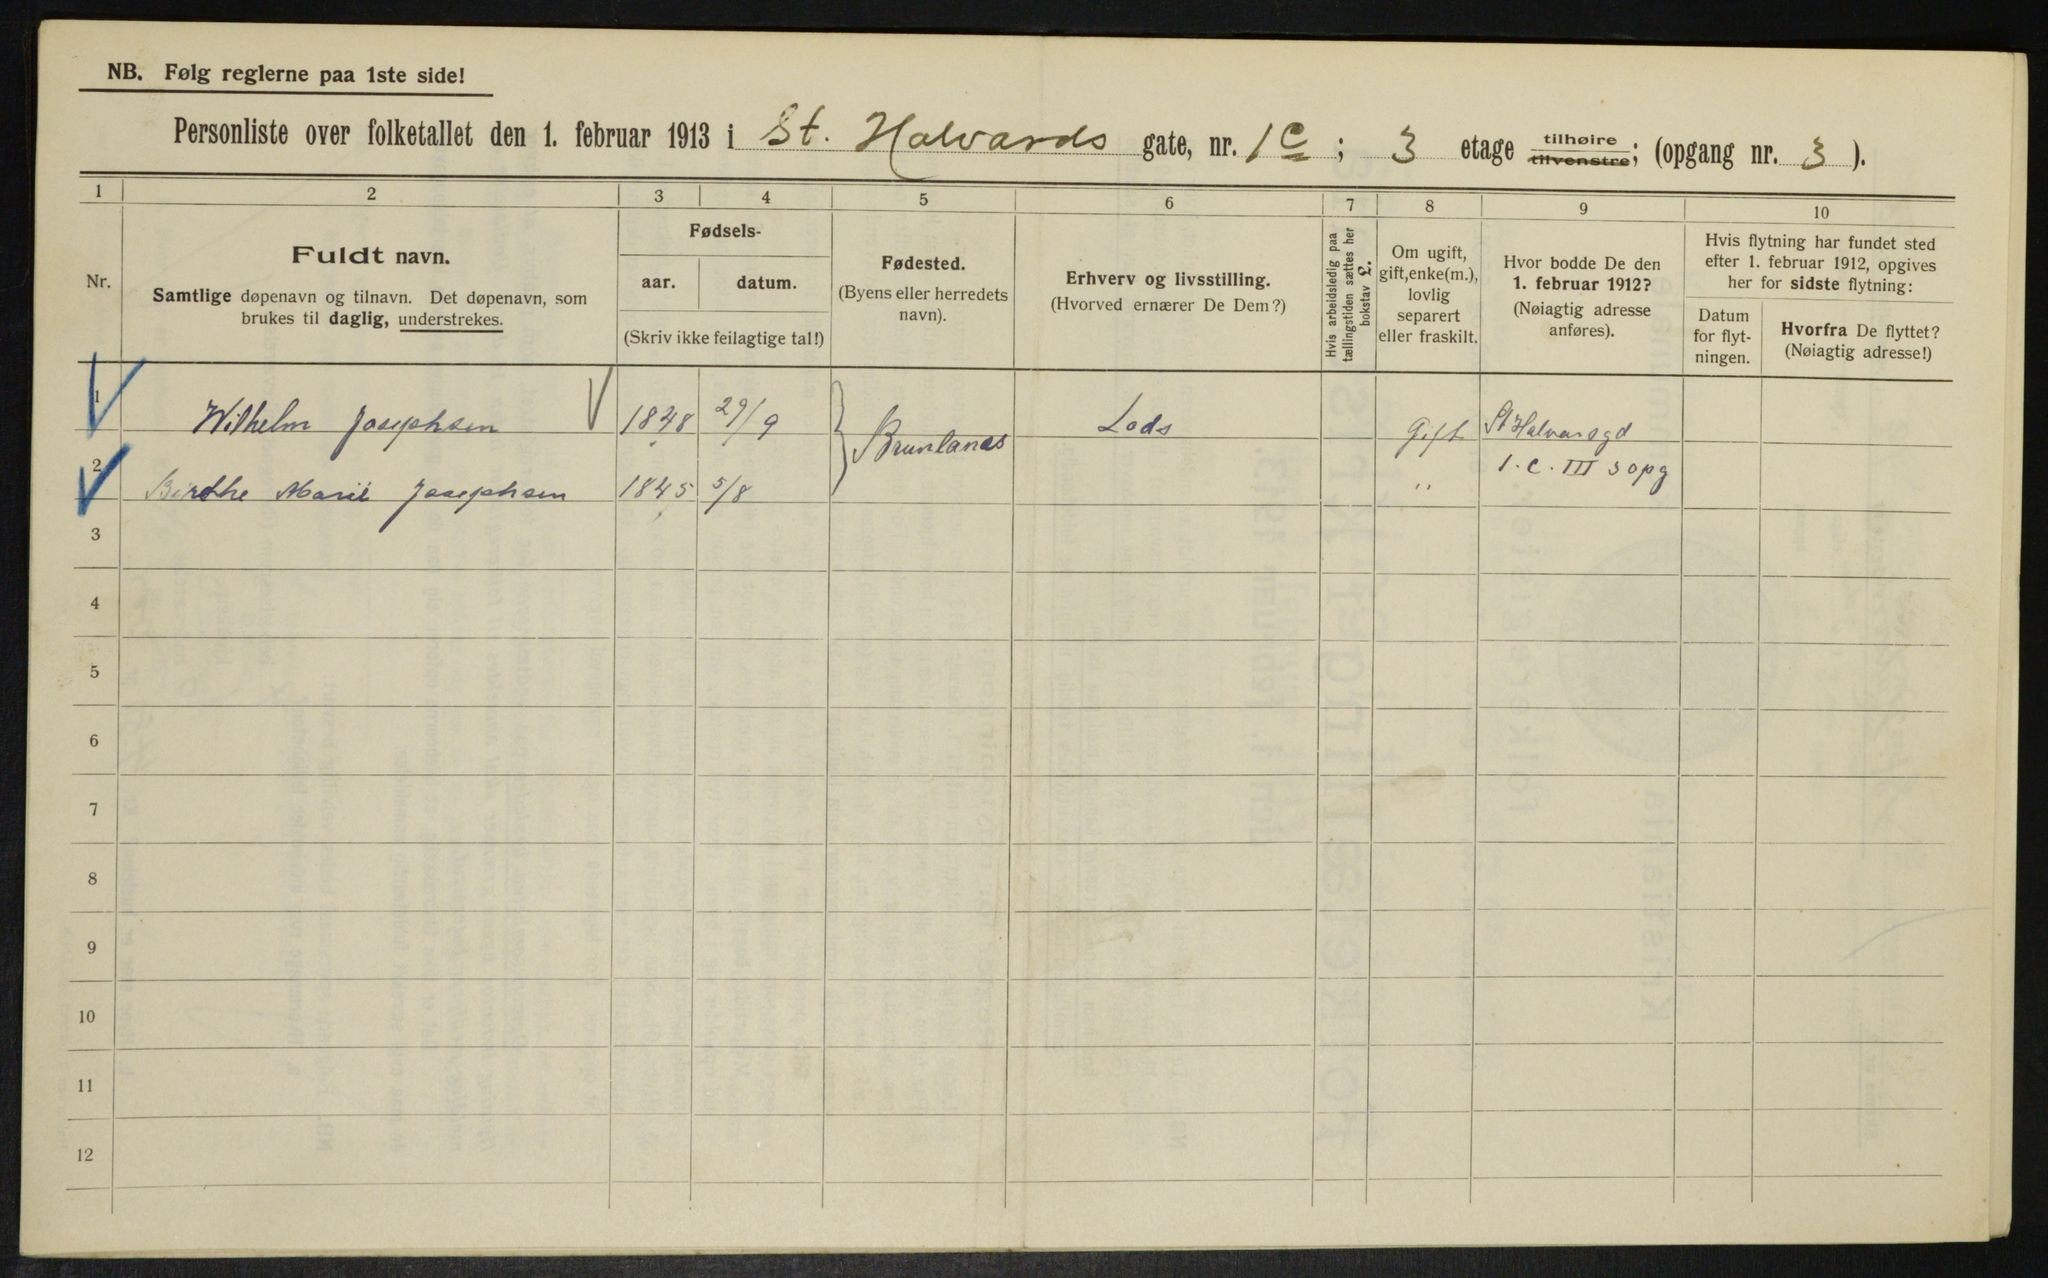 NB. Følg reglerne paa 1ste side!
Personliste over folketallet den 1. februar 1913 i St. Halvards gate, nr. 1 c ; 3 etage tilhøire tilvenstre; (opgang nr. 3 ).
1 2 3 4 5 6 7 8 9 10
Nr.
Fuldt navn.
Samtlige døpenavn og tilnavn. Det døpenavn, som
brukes til daglig, understrekes.
Fødsels-
aar. datum.
(Skriv ikke feilagtige tal!)
Fødested.
(Byens eller herredets
navn).
Erhverv og livsstilling.
(Hvorved ernærer De Dem?)
Hvis arbeidsledig paa
tællingstiden sættes her
bokstav L.
Om ugift,
gift, enke(m.),
lovlig
separert
eller fraskilt.
Hvor bodde De den
1. februar 1912?
(Nøiagtig adresse
anføres).
Hvis flytning har fundet sted
efter 1. februar 1912, opgives
her for sidste flytning:
Datum
for flyt-
ningen.
Hvorfra De flyttet?
(Nøiagtig adresse!)
1 Wilhelm Josephsen 1848 29/9 Brunlanes Lods Gift St Halvarsgd
1. c. III 3 opg
2 Birthe Marie Josephsen 1845 5/8 "
3
4
5
6
7
8
9
10
11
12